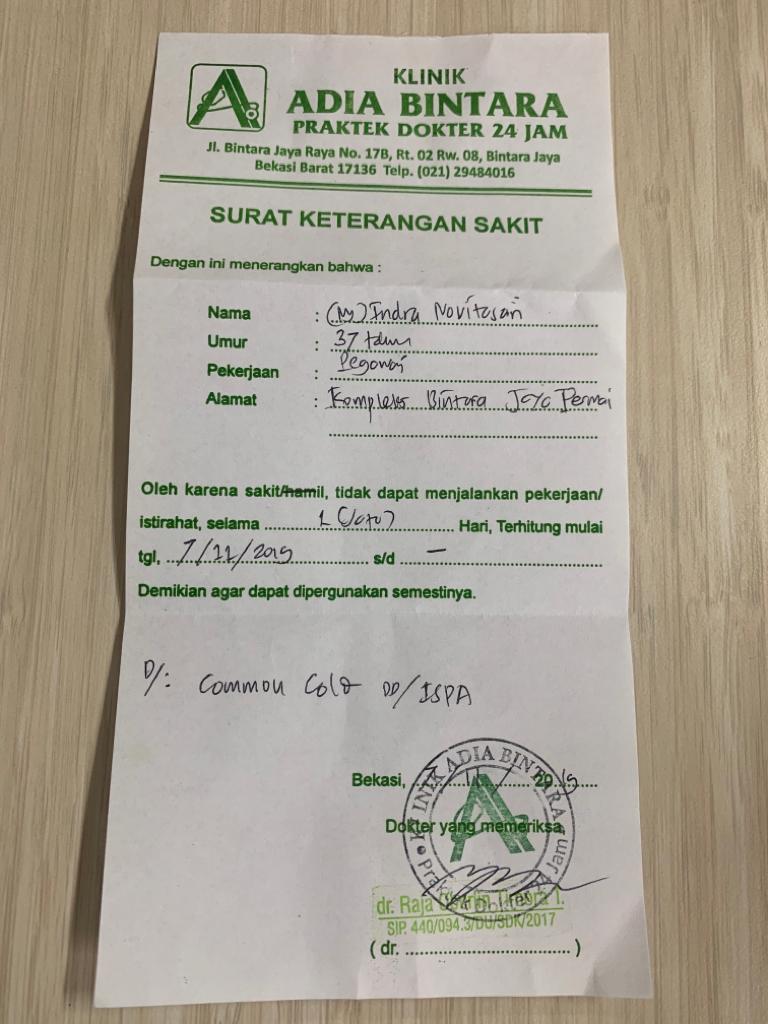 KLINIK
ADIA BINTARA
PRAKTEK DOKTER 24 JAM
Jl. Bintara Jaya Raya No. 17B, Rt. 02 Rw. 08, Bintara Jaya
Bekasi Barat 17136 Telp. (021) 29484016
SURAT KETERANGAN SAKIT
Dengan ini menerangkan bahwa :
Nama : (Ny) Indra Novitasari
Umur : 37 tahun
Pekerjaan : Pegawai
Alamat : Kompleks Bintara Jaya Permai
Oleh karena sakit/hamil, tidak dapat menjalankan pekerjaan/
istirahat, selama 1 (satu) Hari, Terhitung mulai
tgl, 7/11/2019 s/d —
Demikian agar dapat dipergunakan semestinya.
D/: Common Cold DD/ISPA
Bekasi, 7/11/2019
KLINIK ADIA BINTARA
Dokter yang memeriksa,
Praktek Dokter 24 Jam
dr. Raja
SIP. 440/094.3/DU/SDK/2017
( dr. )